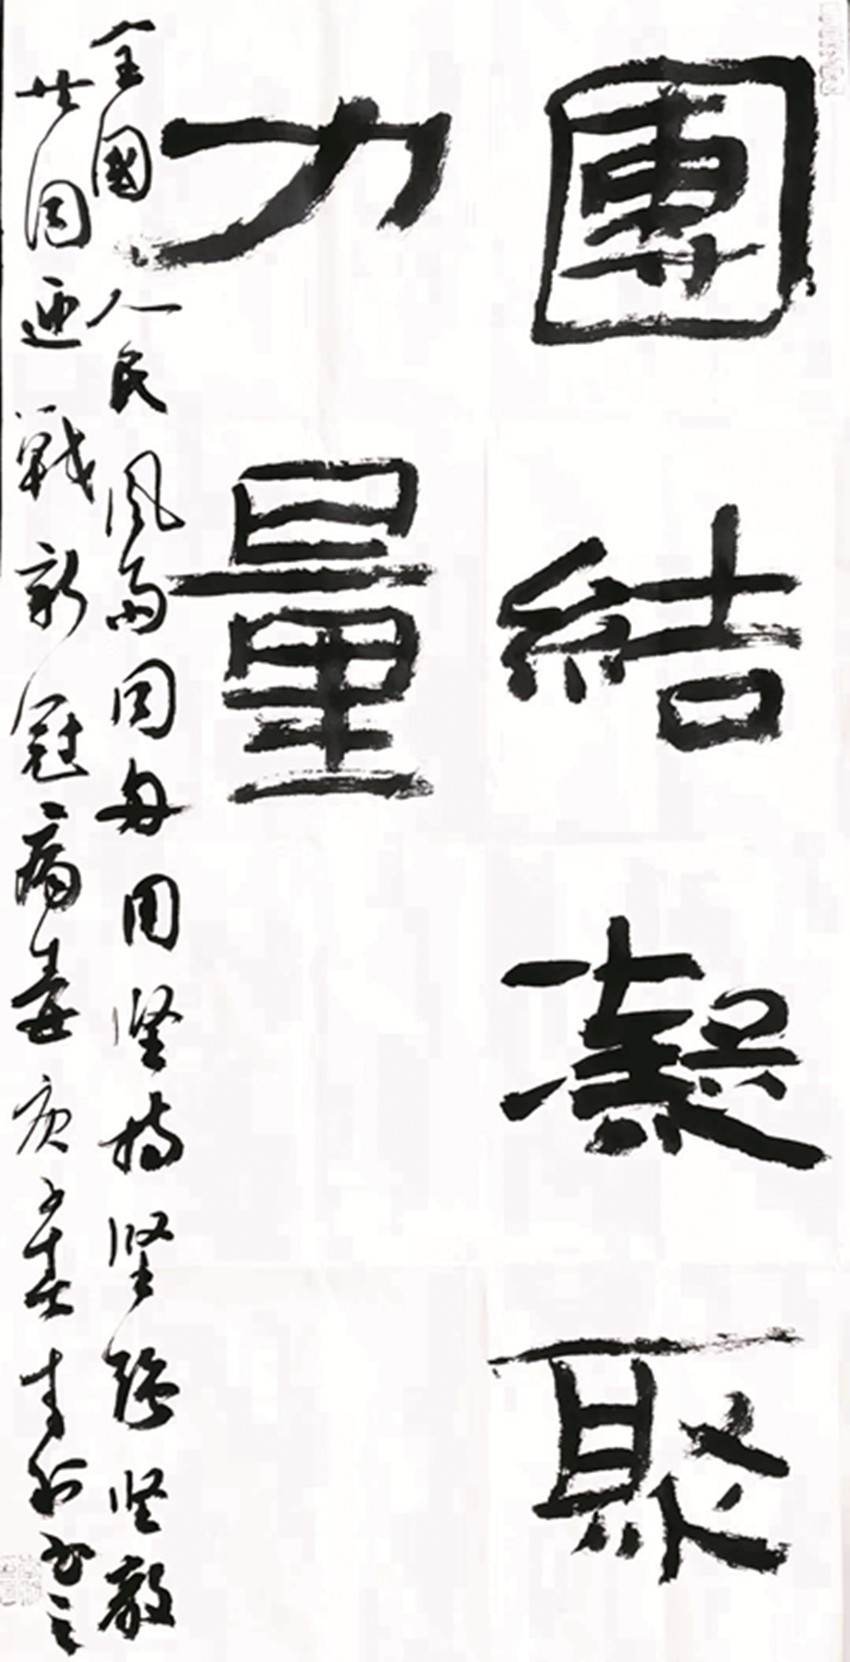 團結凝聚
力量
全國人民風雨同舟用坚持坚强坚毅
共同迎戰新冠病毒庚子春书之